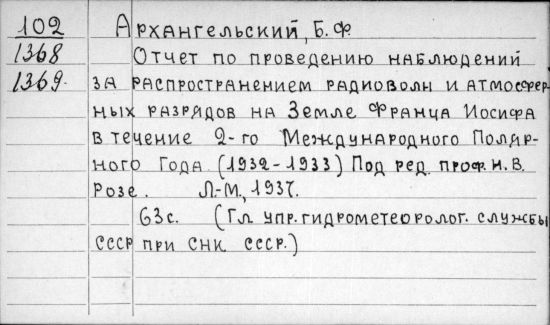 102 Архангельский, Б. Ф
1368 Отчет по проведению наблюдений
1369. за распространением радиоволн и атмосфер-
ных разрядов на Земле Франца Иосифа
в течение 2-го Международного Поляр-
ного Года. (1932-1933) Под ред. проф. Н. В.
Розе. Л-М, 1937.
63с. (Гл упр. гидрометеоролог. службы
СССР при СНК СССР.)